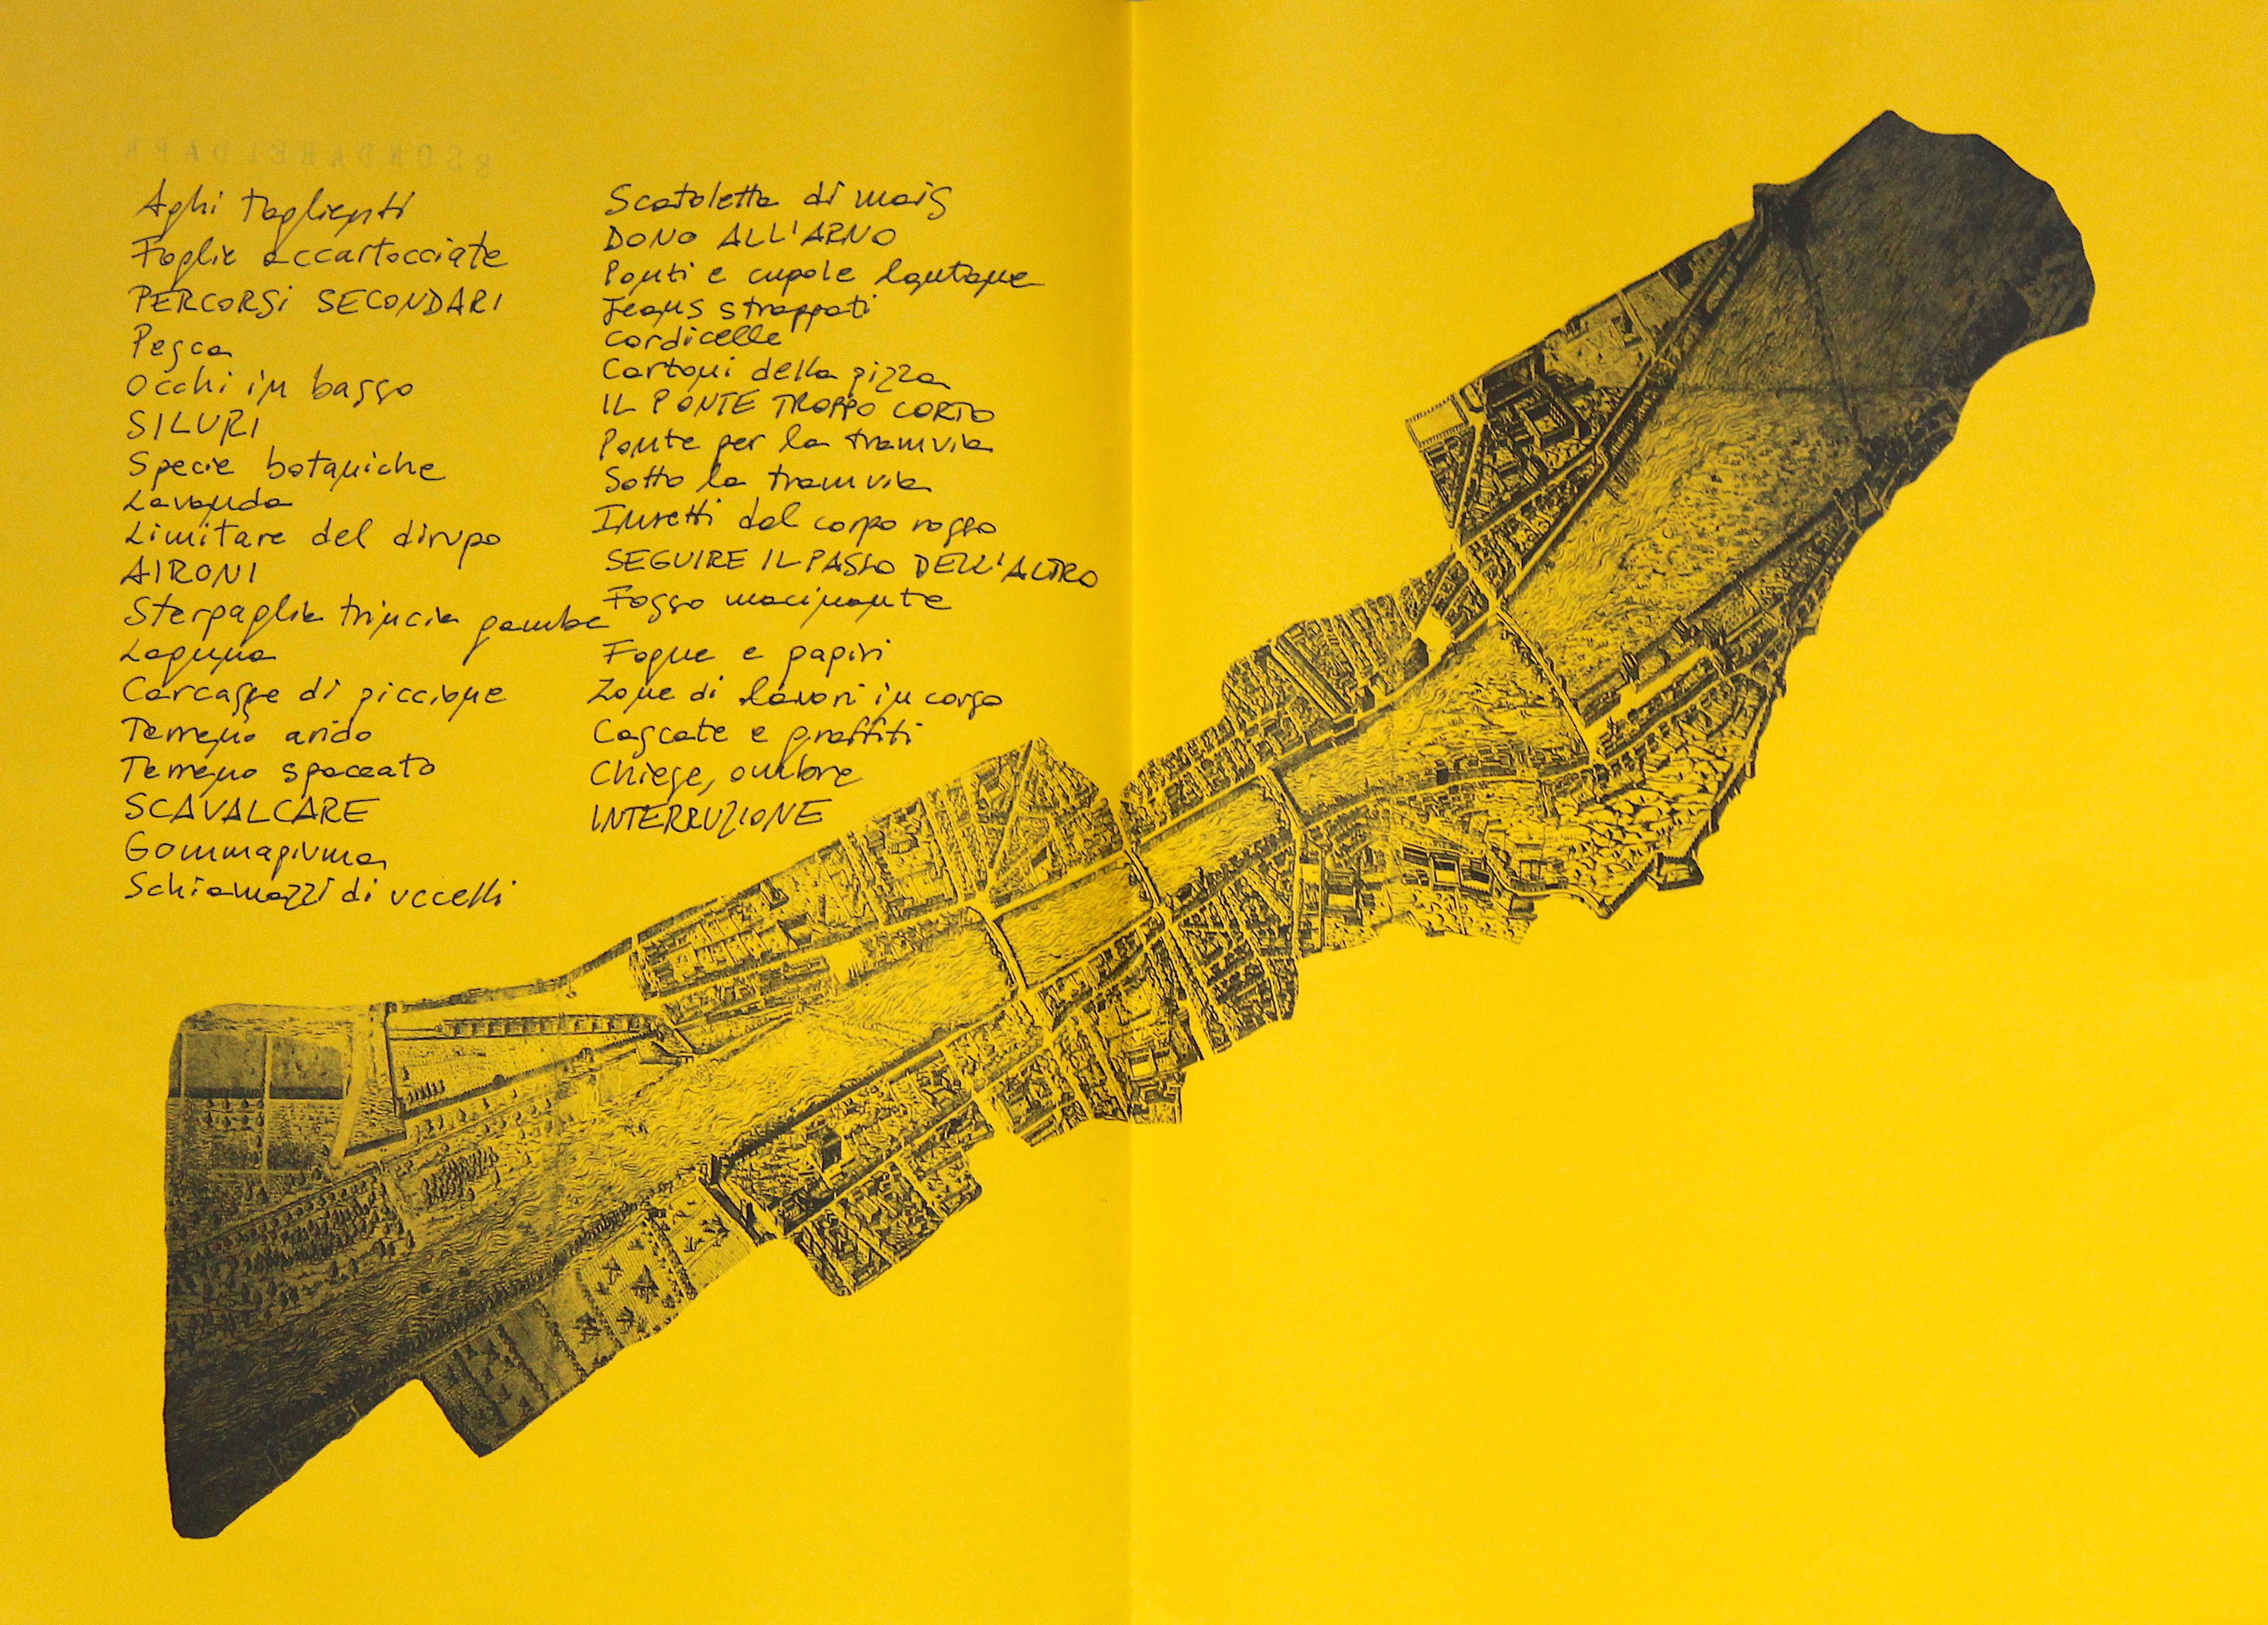 Aghi taglienti
Foglie accartocciate
PERCORSI SECONDARI
Pesca
Occhi in basso
SILURI
Specie botaniche
Lavanda
Limitare del dirupo
AIRONI
Sterpaglia trincia gambe
Laguna
Carcasse di piccione
Terreno arido
Terreno spaccato
SCAVALCARE
Gommapiuma
Schiamazzi di uccelli
Scatoletta di mais
DONO ALL'ARNO
Ponti e cupole lontane
Jeans strappati
Cordicelle
Cartoni della pizza
IL PONTE TROPPO CORTO
Ponte per la tramvia
Sotto la tramvia
Insetti dal corpo rosso
SEGUIRE IL PASSO DELL'ALTRO
Fosso macinante
Fogne e papiri
Zone di lavori in corso
Cascate e graffiti
Chiese, ombre
INTERRUZIONE